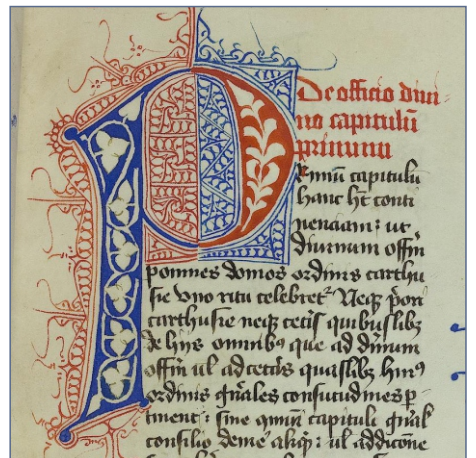 De officio diui
no capitulū
primum
Primū capitulū
hanc hꝫ conti
nenciam: ut
diurnum offm̄
p omnes domos ordinis carthu
sie vno ritu celebret᷑ Neqꝫ p̄ori
carthusie neqꝫ cet̄is quibuslibꝫ
de hijs omnibꝰ que ad diuinum
offm̄ ul ad cet̄as quaslibꝫ huiꝰ
ordinis gn̄ales consuetudines ꝑ
tinent: sine om̄i capituli gn̄al
consilio deme᷑ aliqͥ: ul addicōne